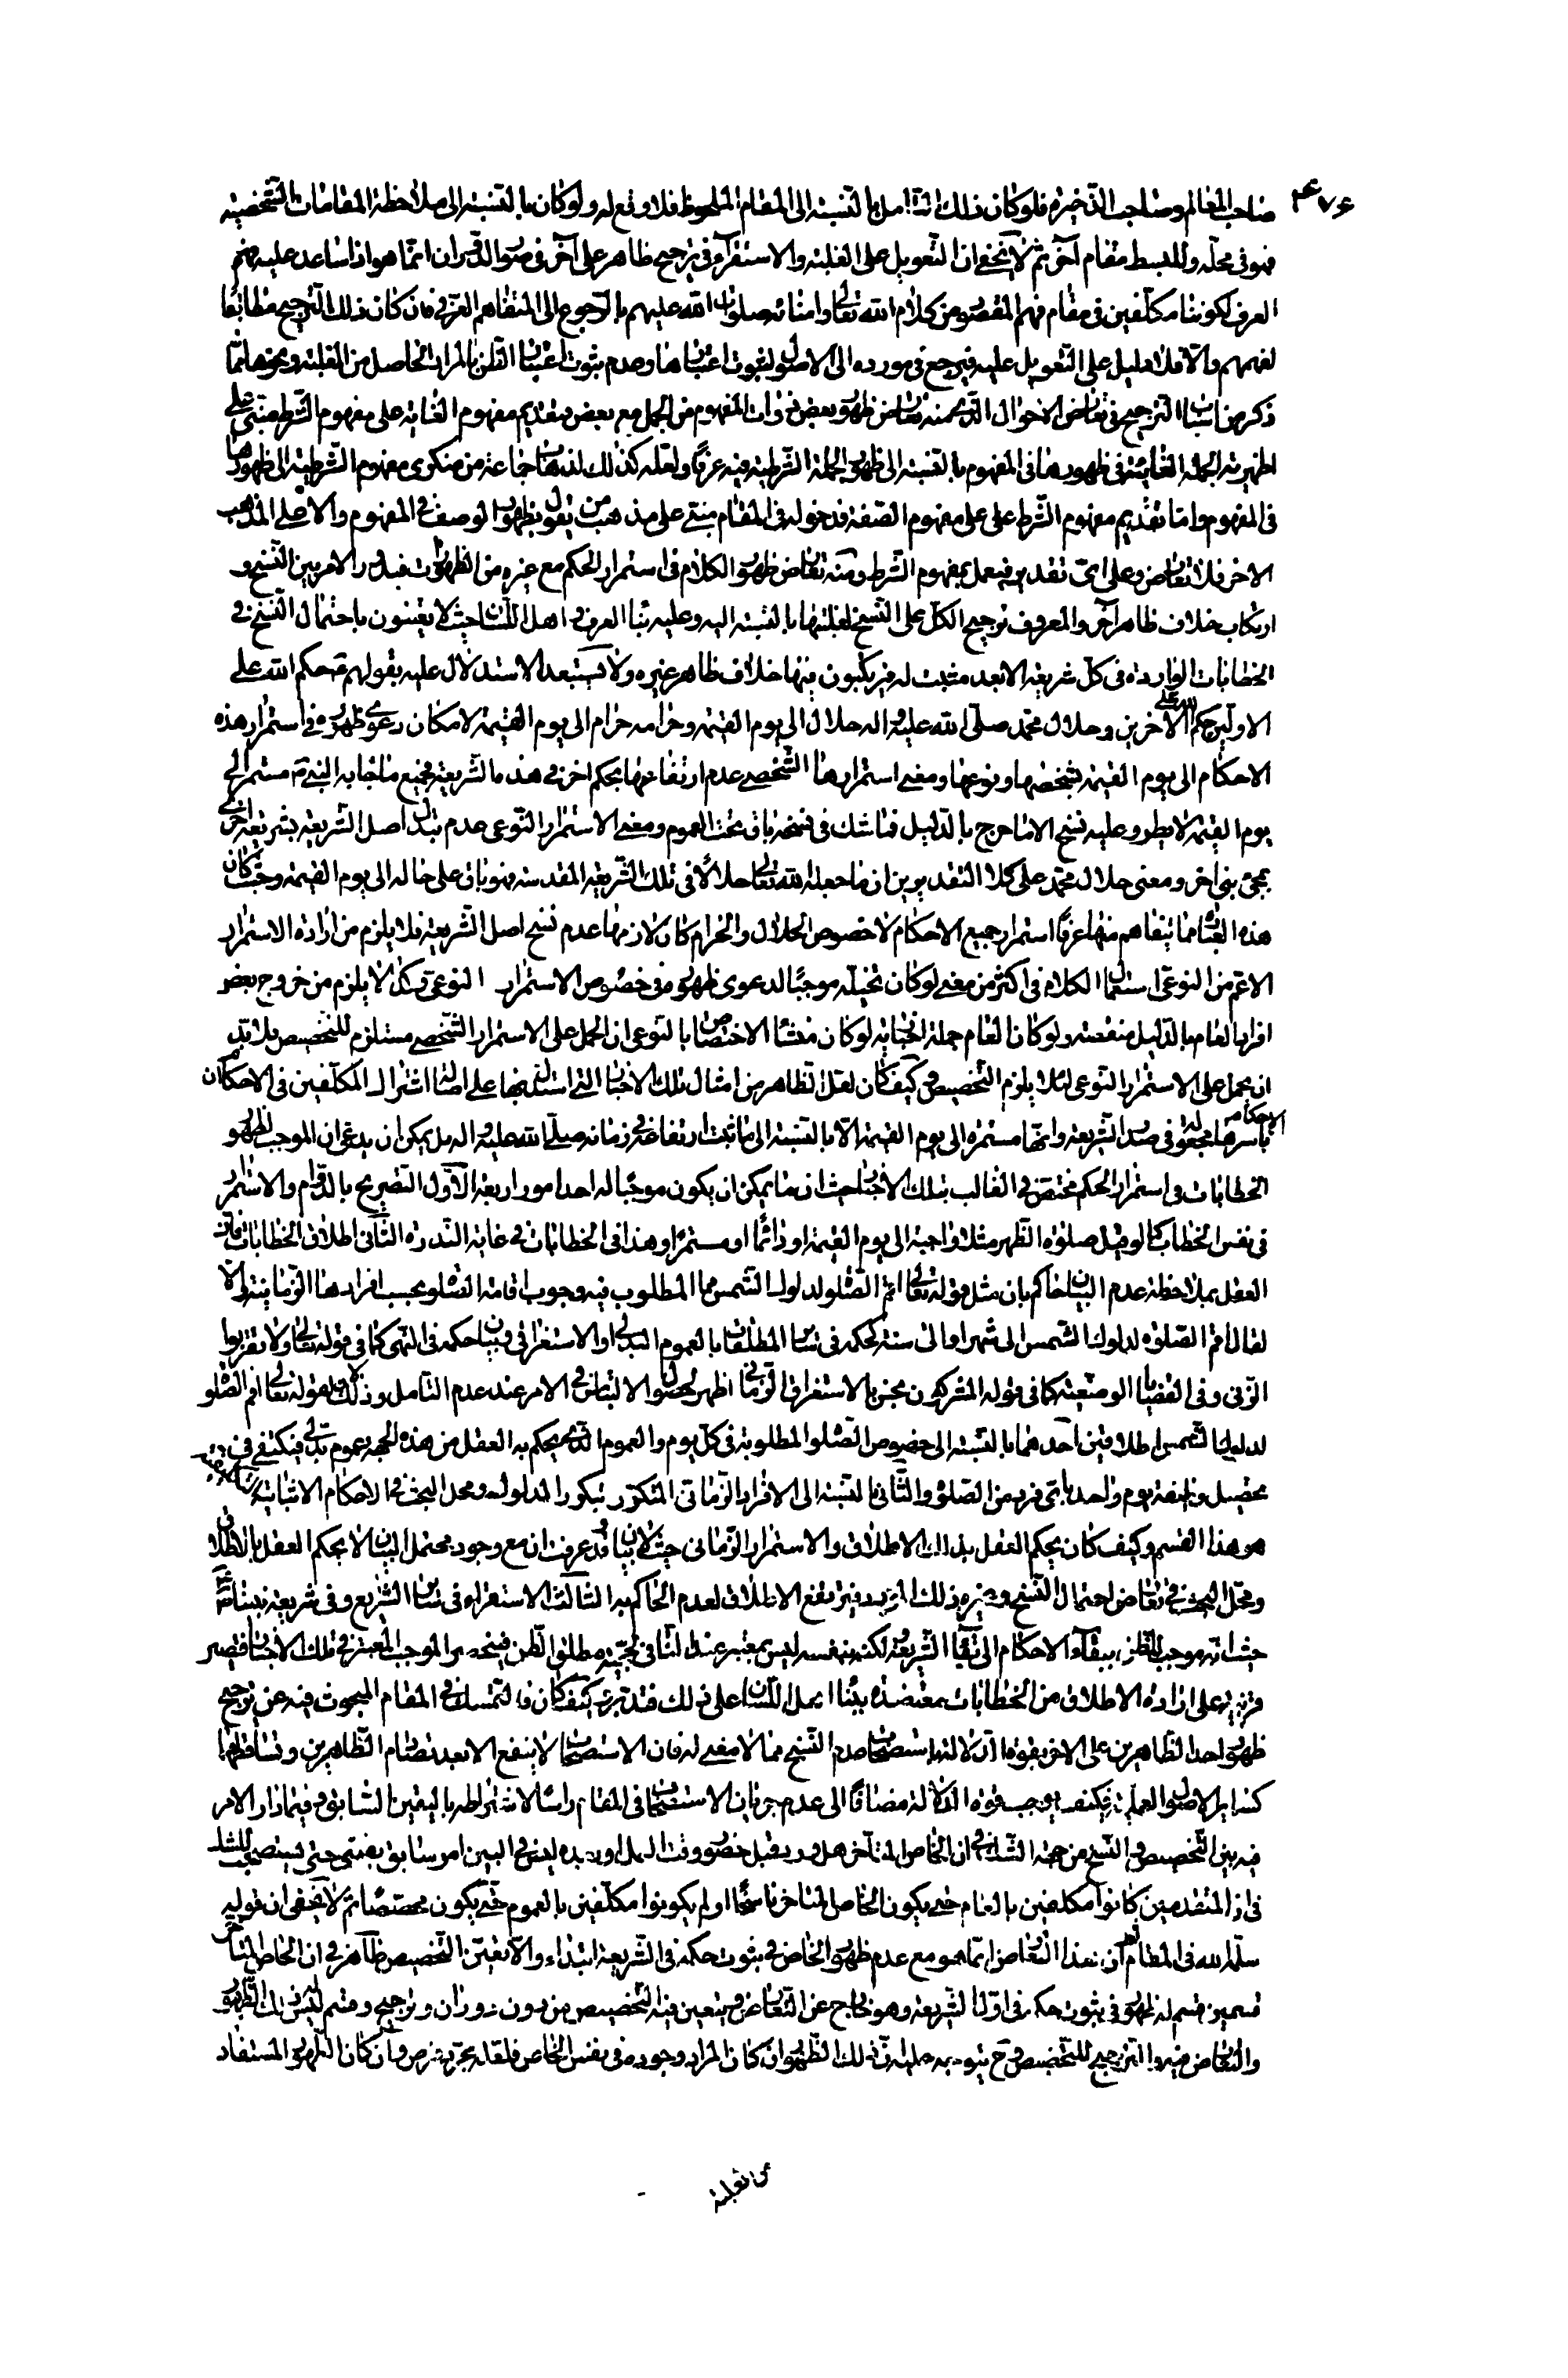 صاحب المعالم وصاحب الذخيره فلو كان ذلك التأمل بالنسبة الى المقام الملحوظ فلا وقع له ولو كان بالنسبة الى ملاحظة المقامات الشخصية
فهو فى محله وللبسط مقام آخر ثم لا يخفى ان التعويل على الغلبة والاستقرآء فى ترجيح ظاهر على آخر فى صور الدوران انما هو اذا ساعد عليه فهم
العرف لكوننا مكلفين فى مقام فهم المقصود من كلام الله تعالى وامنائه صلوات الله عليهم بالرجوع الى المتفاهم العرفى فان كان ذلك الترجيح مطابقا
لفهمهم والا فلا دليل على التعويل عليه فيرجع فى مورده الى الاصول لثبوت اعتبارها وعدم ثبوت اعتبار الظن بالمراد الحاصل من الغلبة ونحوها مما
ذكر من اسباب الترجيح فى تعارض الاحوال الذى منه تعارض ظهور بعض ذوات المفهوم من الجمل مع بعض بتقديم مفهوم الغاية على مفهوم الشرط مبنى على
اظهرية الجملة الغائية فى ظهورها فى المفهوم بالنسبة الى ظهور الجملة الشرطية فيه عرفا ولعله كذلك لذهاب جماعة من منكرى مفهوم الشرطية الى ظهورها
فى المفهوم واما تقديم مفهوم الشرط على على مفهوم الصفة فدخوله فى المقام مبتنى على مذهب من يقول بظهور الوصف فى المفهوم والا فعلى المذهب
الاخر فلا تعارض وعلى اى تقدير فيعمل بمفهوم الشرط ومنه تعارض ظهور الكلام فى استمرار الحكم مع غيره من الظهورات فيدور الامر بين النسخ و
ارتكاب خلاف ظاهر آخر والمعروف ترجيح الكل على النسخ لغلبتها بالنسبة اليه وعليه بنا العرف اهل اللسان حيث لا يعتنون باحتمال النسخ فى
الخطابات الواردة فى كل شريعة الا بعد مثبت له فيرتكبون فيها خلاف ظاهر غيره ولا يستبعد الاستدلال عليه بقولهم ع حكم الله على
الاولين حكم الله على الاخرين وحلال محمد صلى الله عليه واله حلال الى يوم القيمة وحرامه حرام الى يوم القيمة لامكان دعوى ظهوره فى استمرار هذه
الاحكام الى يوم القيمة بشخصها ونوعها ومعنى استمرارها الشخصى عدم ارتفاعها بحكم اخر فى هذه الشريعة فجميع ما جاء به النبى ص مستمر الى
يوم القيمة لا يطرو عليه نسخ الا ما خرج بالدليل فما شك فى نسخه باق تحت العموم ومعنى الاستمرار النوعى عدم تبدل اصل الشريعة بشريعة اخرى
بمجئ نبى اخر ومعنى حلال محمد على كلا التقديرين ان ما جعله الله تعالى حلالا فى تلك الشريعة المقدسة فهو باق على حاله الى يوم القيمة وحيث كان
هذه العبارة مما يتفاهم منها عرفا استمرار جميع الاحكام لا خصوص الحلال والحرام كان لازمها عدم نسخ اصل الشريعة فلا يلزم من ارادة الاستمرار
الاعم من النوعى استعمال الكلام فى اكثر من معنى لو كان تخيله موجبا لدعوى ظهوره فى خصوص الاستمرار النوعى وكذا لا يلزم من خروج بعض
افراد العام بالدليل منقصة ولو كان العام جملة اخبارية لو كان منشا الاختصاص بالنوعى ان الحمل على الاستمرار الشخصى مستلزم للتخصيص فلا بد
ان يحمل على الاستمرار النوعى لئلا يلزم التخصيص وكيف كان لعل الظاهر من امثال تلك الاخبار التى استدل بها على اصالة اشتراك المكلفين فى الاحكام ان
الاحكام
باسرها مجعولة فى صدر الشريعة وانها مستمرة الى يوم القيمة الا بالنسبة الى ما ثبت ارتفاعه فى زمانه صلى الله عليه واله بل يمكن ان يدعى ان الموجب لظهور
الخطابات فى استمرار الحكم مختص فى الغالب بتلك الاخبار حيث ان ما يمكن ان يكون موجبا له احد امور اربعة الاول التصريح بالدوام والاستمرار
فى نفس الخطاب كما لو قيل صلوة الظهر مثلا واجبة الى يوم القيمة او دائما او مستمرا وهذا فى الخطابات فى غاية الندرة الثانى اطلاق الخطابات فان
العقل بملاحظة عدم البيان حاكم بان مثل قوله تعالى اقم الصلوة لدلوك الشمس مما المطلوب فيه وجوب اقامة الصلوة بحسب افرادها الزمانية والا
لقال اقم الصلوة لدلوك الشمس الى شهر او الى سنة كحكمه فى ساير المطلقات بالعموم البدلى او الاستغراقى وبيان حكمه فى النهى كما فى قوله تعالى ولا تقربوا
الزنى وفى القضايا الوضعية كما فى قوله المشركون نجس بالاستغراق الزمانى اظهر لحصول الالتباس فى الامر عند عدم التامل وذلك لان قوله تعالى اقم الصلوة
لدلوك الشمس اطلاقين احدهما بالنسبة الى خصوص الصلوة المطلوبة فى كل يوم والعموم الذى يحكم به العقل من هذه الجهة عموم بدلى فيكتفى فى
تحصيل وظيفة يوم واحد باى فرد من الصلوة والثانى بالنسبة الى الافراد الزمانى المتكرر بتكرر الدلوك ومحل البحث فى الاحكام الاثباتية
هو هذا القسم وكيف كان يحكم العقل بذلك الاطلاق والاستمرار الزمانى حيث لا بيان وقد عرفت ان مع وجود محتمل البيان لا يحكم العقل بالاطلاق
ومحل البحث فى تعارض احتمال النسخ وغيره ذلك فيرتفع الاطلاق لعدم الحاكم به الثالث الاستقراء فى ساير الشرايع وفى شريعة نبينا ص
حيث انه موجب للظن ببقآء الاحكام الى بقاء الشريعة لكنه بنفسه ليس بمعتبر عند النافى لحجية مطلق الظن فينحصر الموجب المعتبر فى تلك الاخبار فتصير
قرينة على ارادة الاطلاق من الخطابات بمعتضدة ببناء اهل اللسان على ذلك فتدبر وكيف كان فالتمسك فى المقام المبحوث فيه عن ترجيح
ظهور احد الظاهرين على الاخر بقوة الدلالة باستصحاب عدم النسخ مما لا معنى له فان الاستصحاب لا ينفع الا بعد تصادم الظاهرين وتساقطهما
كساير الاصول العملية فكيف يوجب قوة الدلالة مضافا الى عدم جريان الاستصحاب فى المقام راسا لاشتراطه باليقين السابق وفيما دار الامر
فيه بين التخصيص والنسخ من جهة الشك فى ان الخاص المتاخر هل ورد قبل حضور وقت العمل او بعده ليس فى البين امر سابق يقينى حتى يستصحب للشك
فى ان المتقدمين كانوا مكلفين بالعام حتى يكون الخاص المتاخر ناسخا او لم يكونوا مكلفين بالعموم حتى يكون مخصصا ثم لا يخفى ان قوله
سلمه الله فى المقام ان هذا التعارض انما هو مع عدم ظهور الخاص فى ثبوت حكمه فى الشريعة ابتداء والا تعين التخصيص ظاهر فى ان الخاص المتاخر
قسمين قسم له ظهور فى ثبوت حكمه فى اول الشريعة وهو خارج عن التعارض ويتعين فيه التخصيص من دون دوران وترجيح وقسم ليس له ذلك الظهور
والتعارض فيه والترجيح للتخصيص وح يتوجه عليه ان ذلك الظهور ان كان المراد وجوده فى نفس الخاص فلعله مجرد فرض وان كان الظهور المستفاد